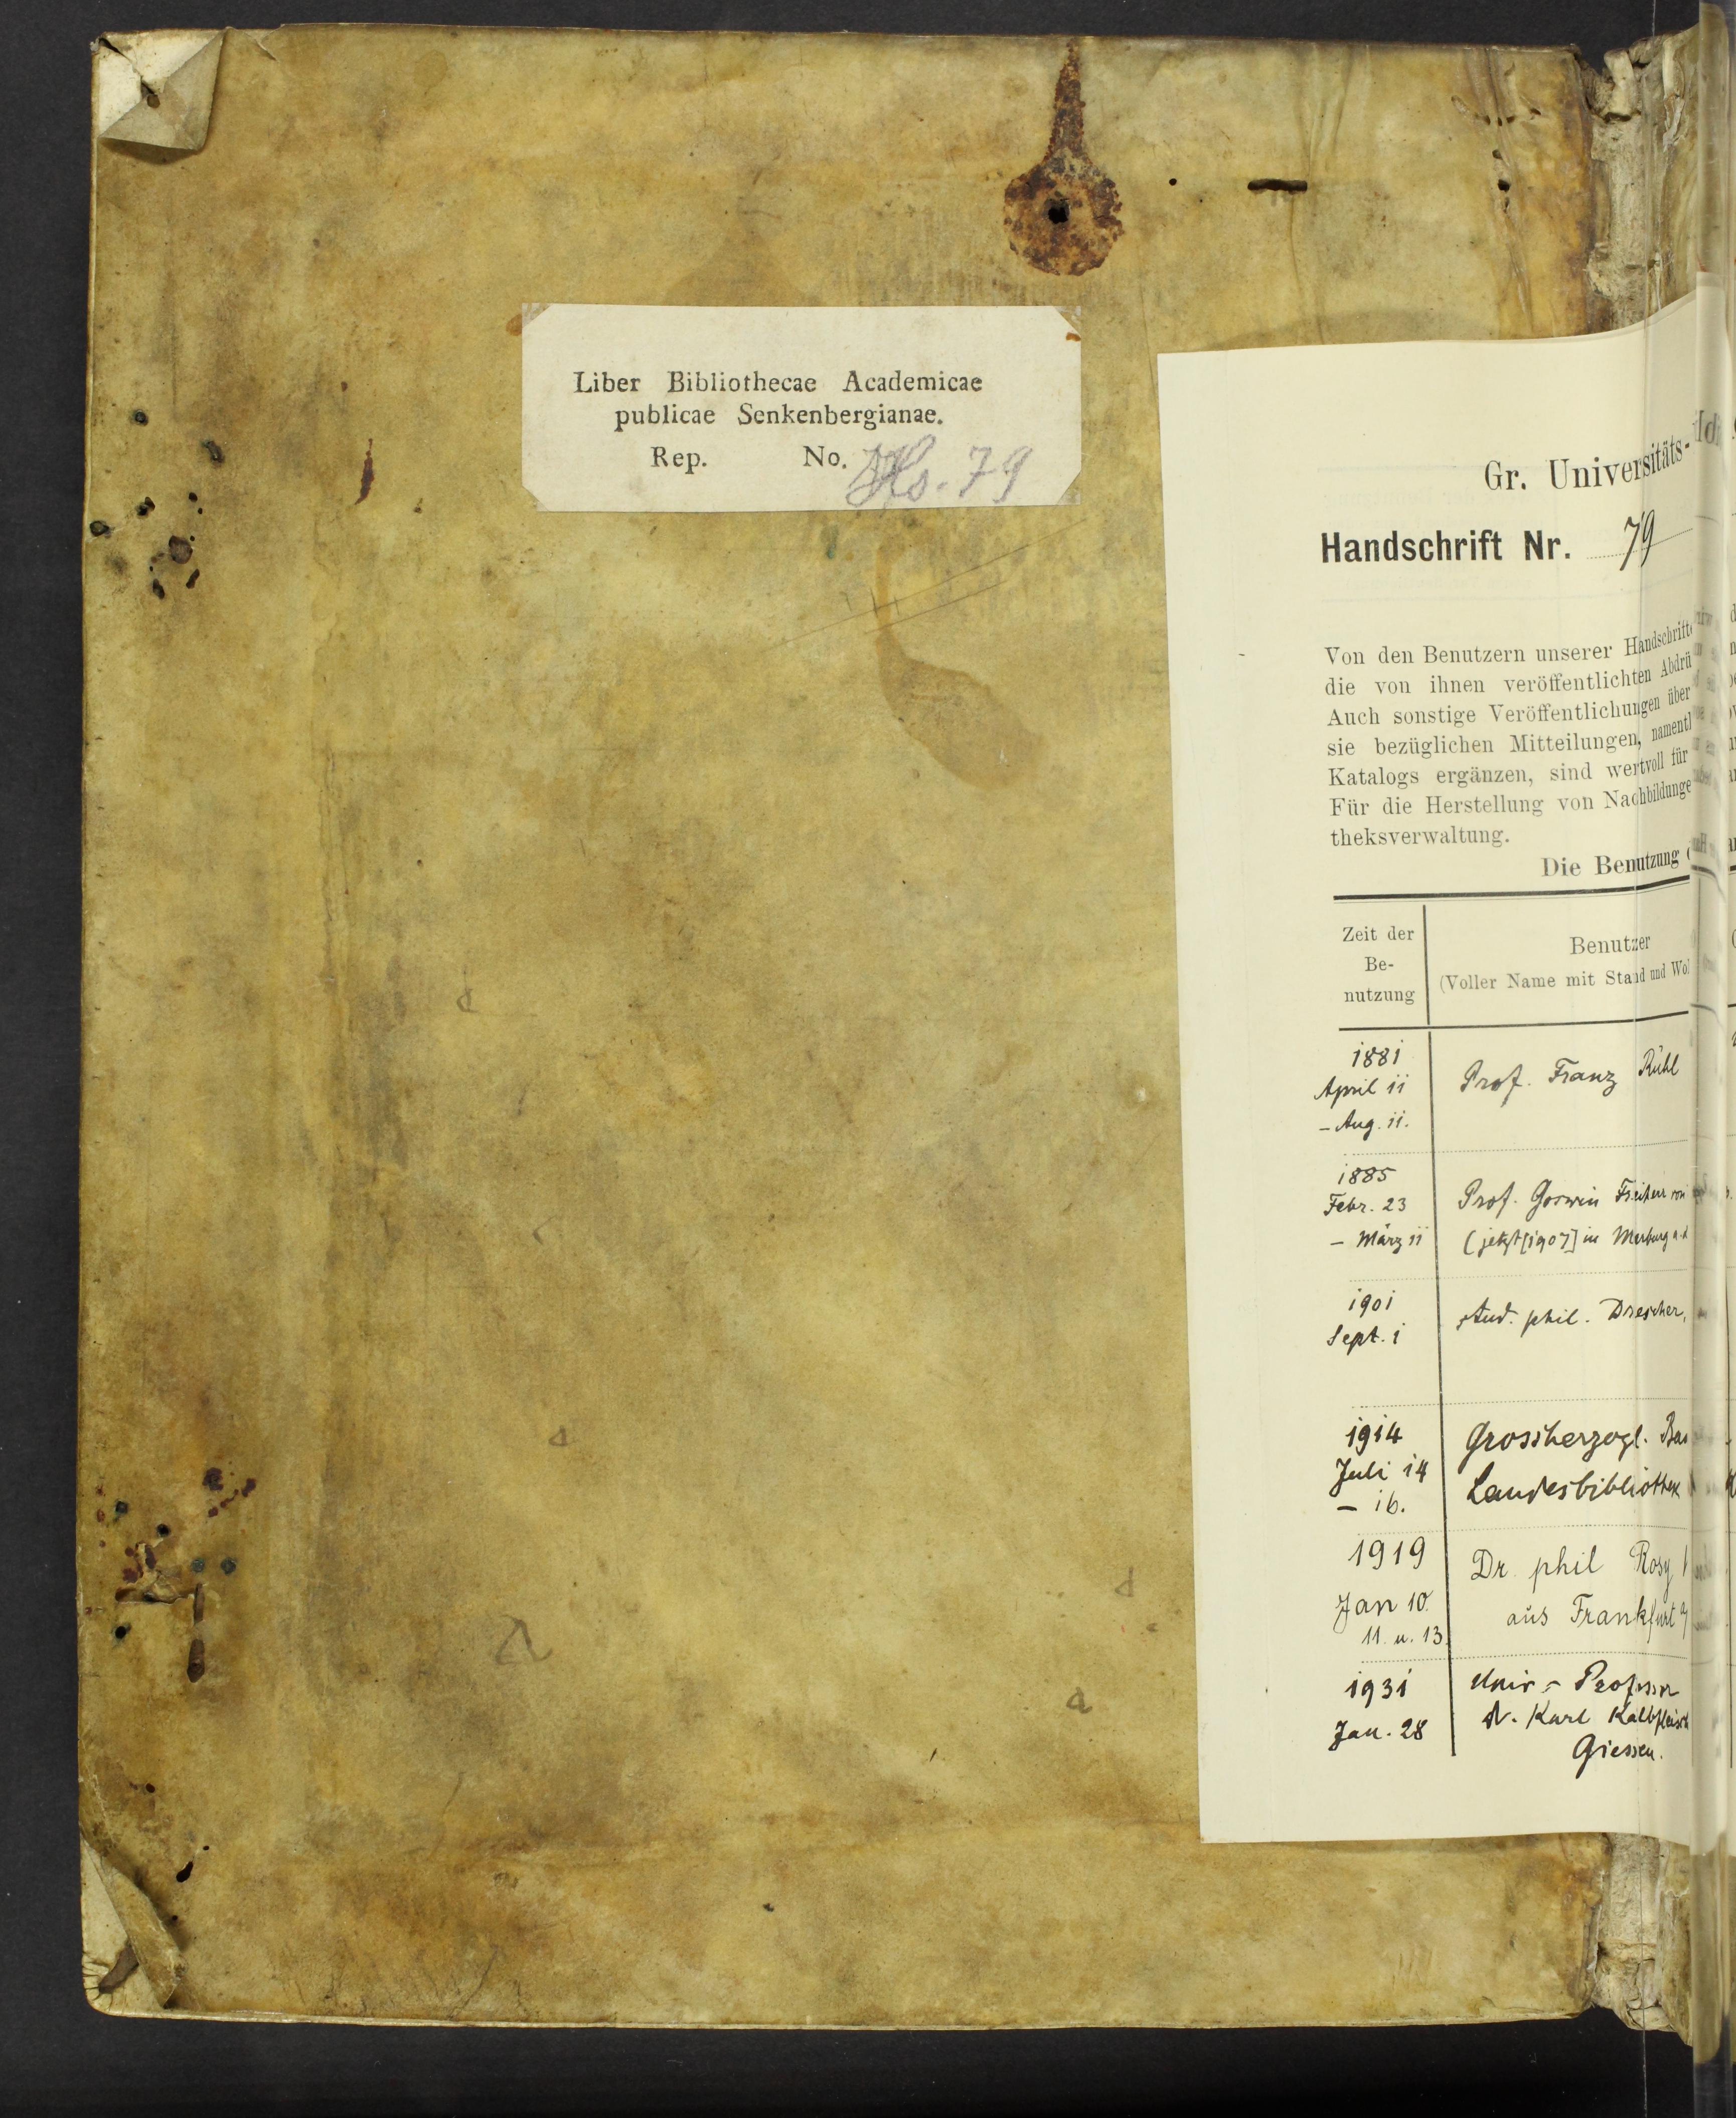 Liber Bibliothecae Academicae
publicae Senkenbergianae.
Rep. No. Hs. 79
Gr. Universitäts-
Handschrift Nr. 79
Von den Benutzern unserer
die von ihnen veröffentlichten
Auch sonstige Veröffentlichungen über
sie bezüglichen Mitteilungen,
Katalogs ergänzen, sind wertvoll für
Für die Herstellung von
theksverwaltung.
Die Benutzung
Zeit der
Be-
nutzung
Benutzer
(Voller Name mit Stand und
1881
April 11
- Aug. 11.
Prof. Franz Rühl
1885
Febr. 23
- März 11
Prof. Goswin Freiherr von
(jetzt [1907] in Marburg a.
1901
Sept. 1
stud. phil. Drescher,
1914
Juli 14
- 16.
Grossherzogl.
Landesbibliothek
1919
Jan 10.
11. u. 13.
Dr. phil Rosy
aus Frankfurt
1931
Jan. 28
Univ.-Professor
Dr. Karl Kalbfleisch
Giessen.